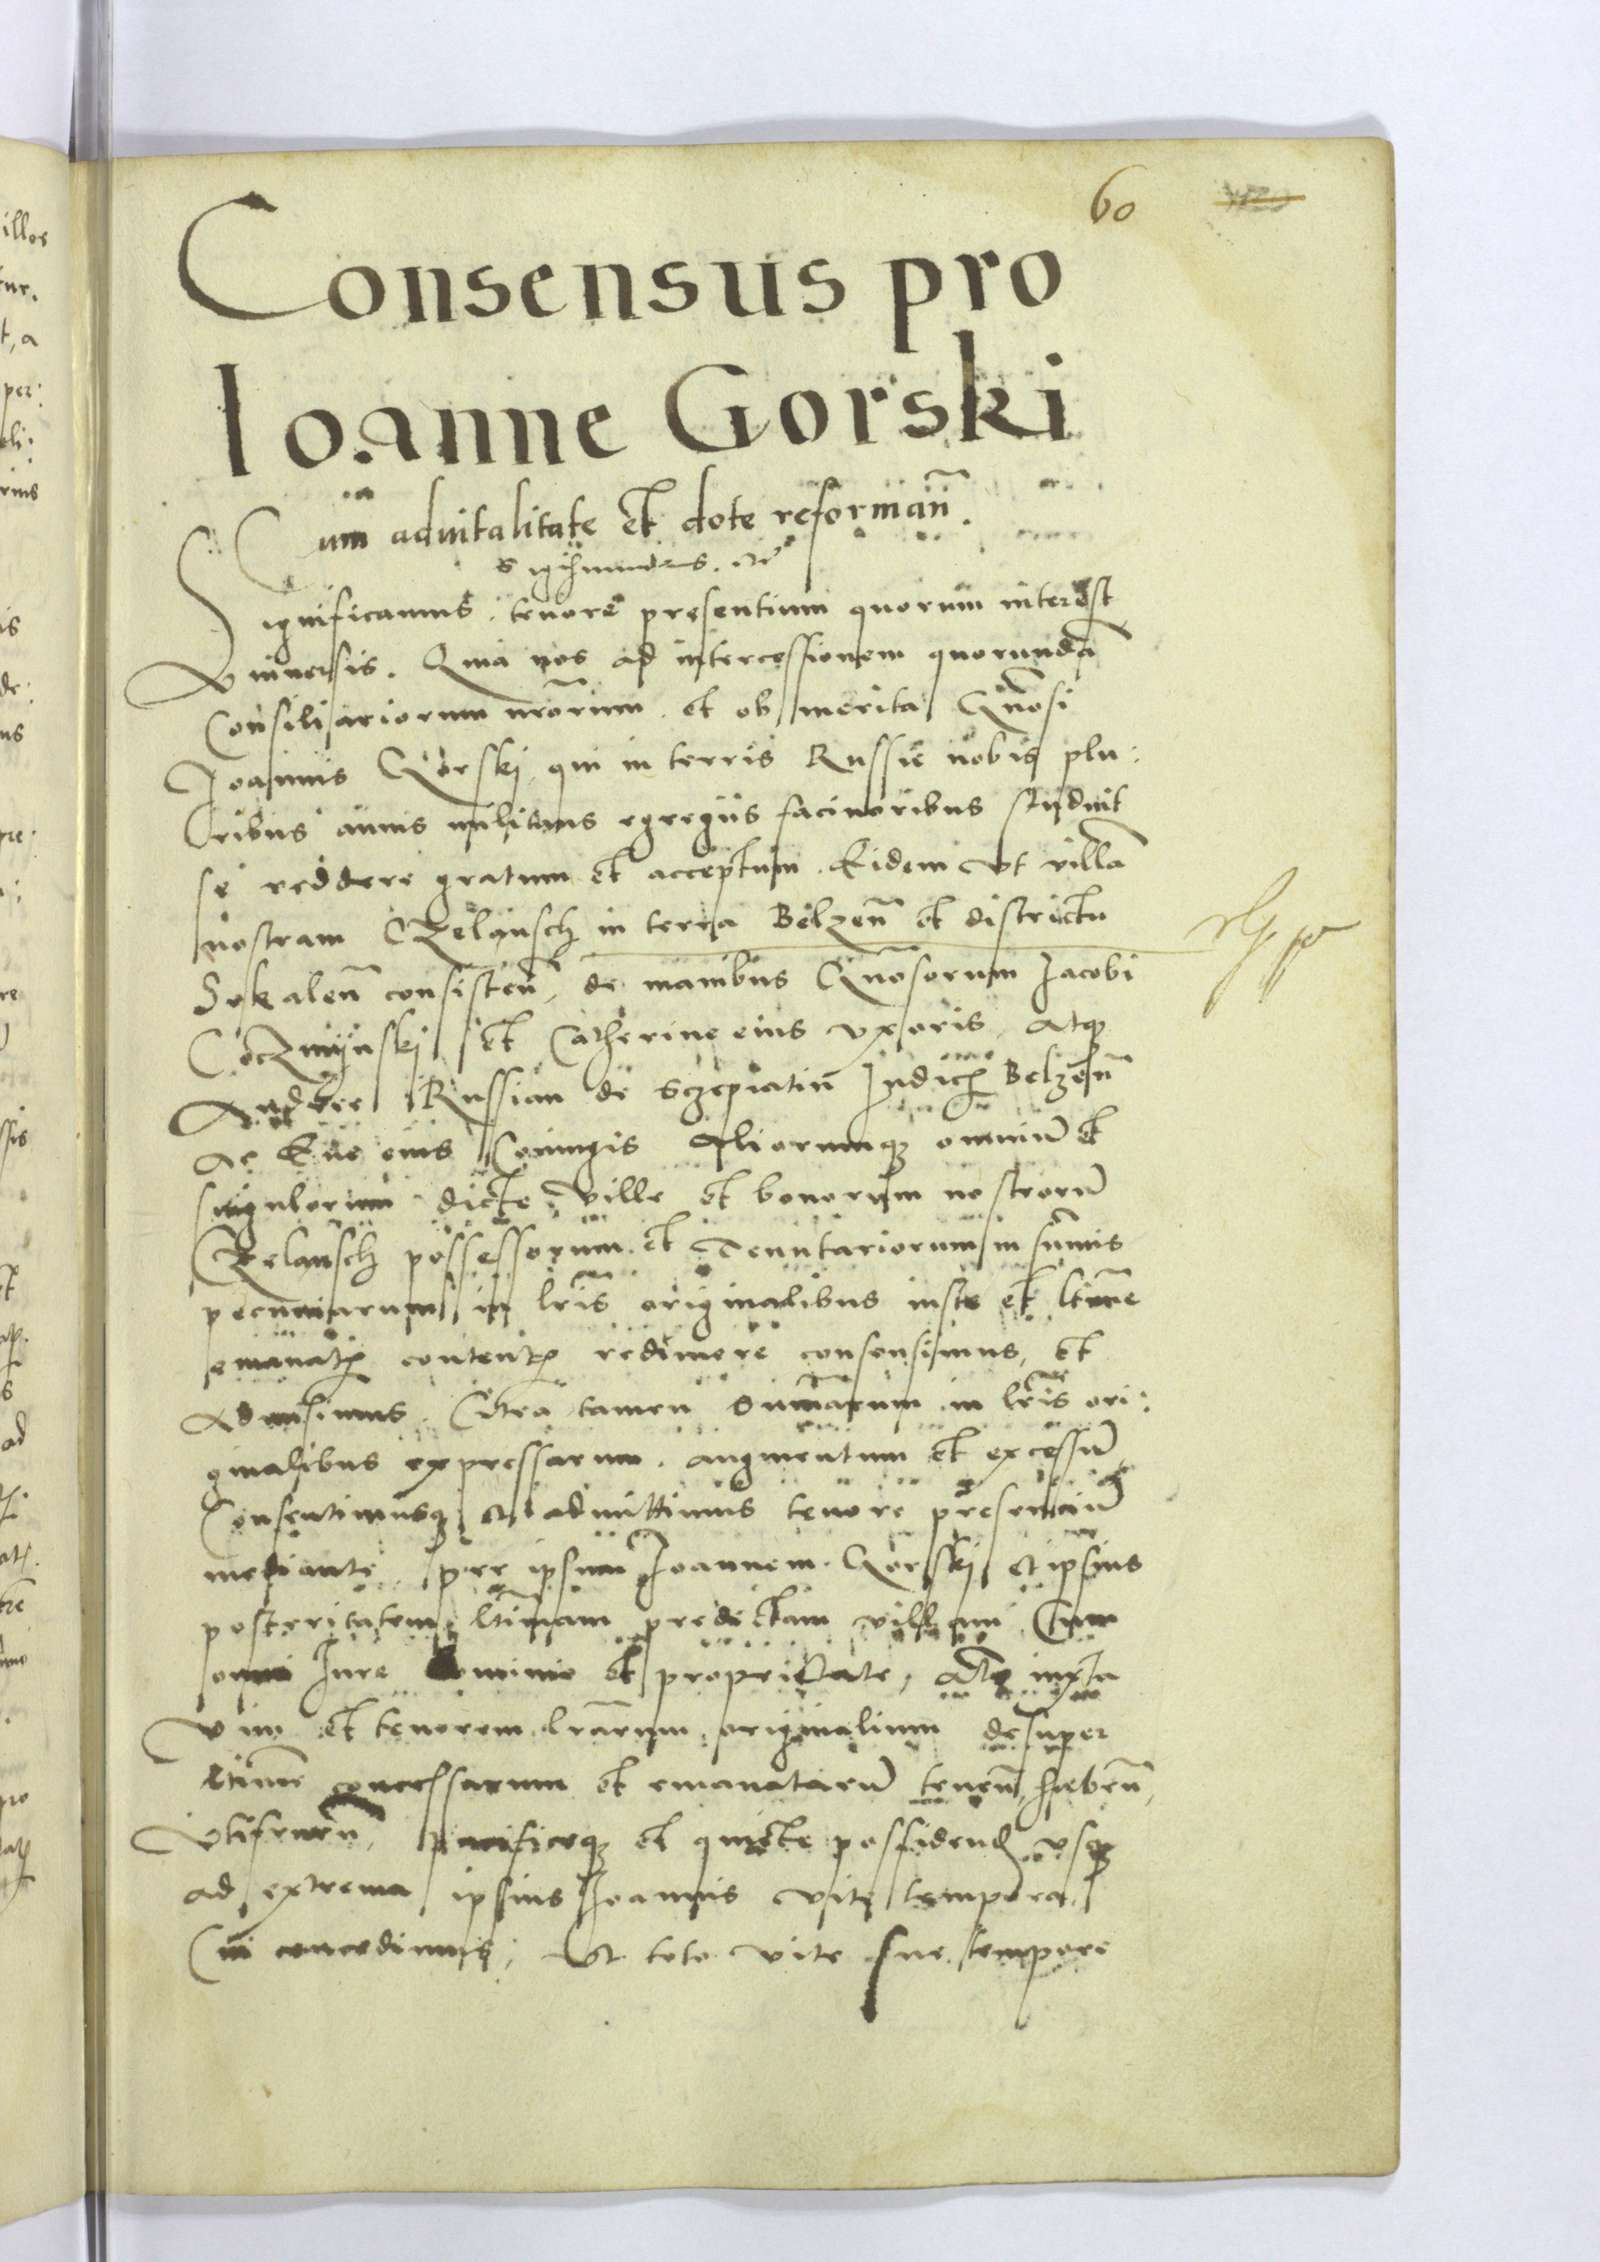 60
Consensus pro
Ioanne Gorski
Cum aduitalitate et dote reformañ.
Sigismundus. etc
Significamus tenore presentium quorum interest
Vniuersis. Quia nos ad intercessionem quorundã
Consiliariorum nr̃orum et ob merita Gñosi
Joannis Gorski qui in terris Russie nobis plu:
ribus annis militans egregiis facinoribus studuit
se reddere gratum et acceptum. Eidem vt villã
nostram in terra Belzeñ et districtu
Sokaleñ consisteñ, de manibus Gñosorum Jacobi
et Catherine eius vxoris, atq
Andree Russian de Sczepiatin Judicis Belzeñ
Ac Eue eius Coniugis Aliorumq omniũ et
singulorum dicte Ville et bonorum nostrorũ
possessorum et Tenutariorum in sum̃is
pecuniarum in lr̃is originalibus iuste et ltim̃e
emanatis contentis redimere consensimus, et
Admisimus. Citra tamen Sum̃arum in lr̃is ori:
ginalibus expressarum augmentum et excessũ
Consentimusq et admittimus tenore presenciũ
mediante, per ipsum Joannem Gorski et ipsius
posteritatem ltimam predictam villam Cum
omni Jure dominio et proprietate, iuxta
Vim et tenorem lr̃arum originalium desuper
ltim̃e concessarum et emanatarũ teneñ, habeñ,
Vtifrueñ, pacificeq et quiete possidend vsq
ad extrema ipsius Joannis vite tempora
Cui concedimus, Vt toto vite sue tempore